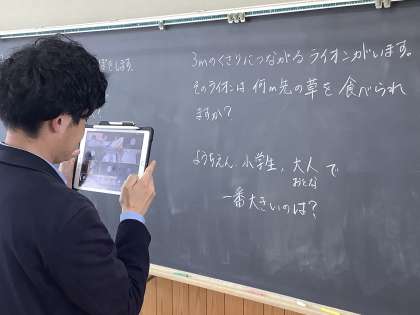 をします。
3mのくさりにつながるライオンがいます。
そのライオンは何m先の草を食べられ
ますか?
ようちえん、小学生、大人で
おとな
一番大きいのは?